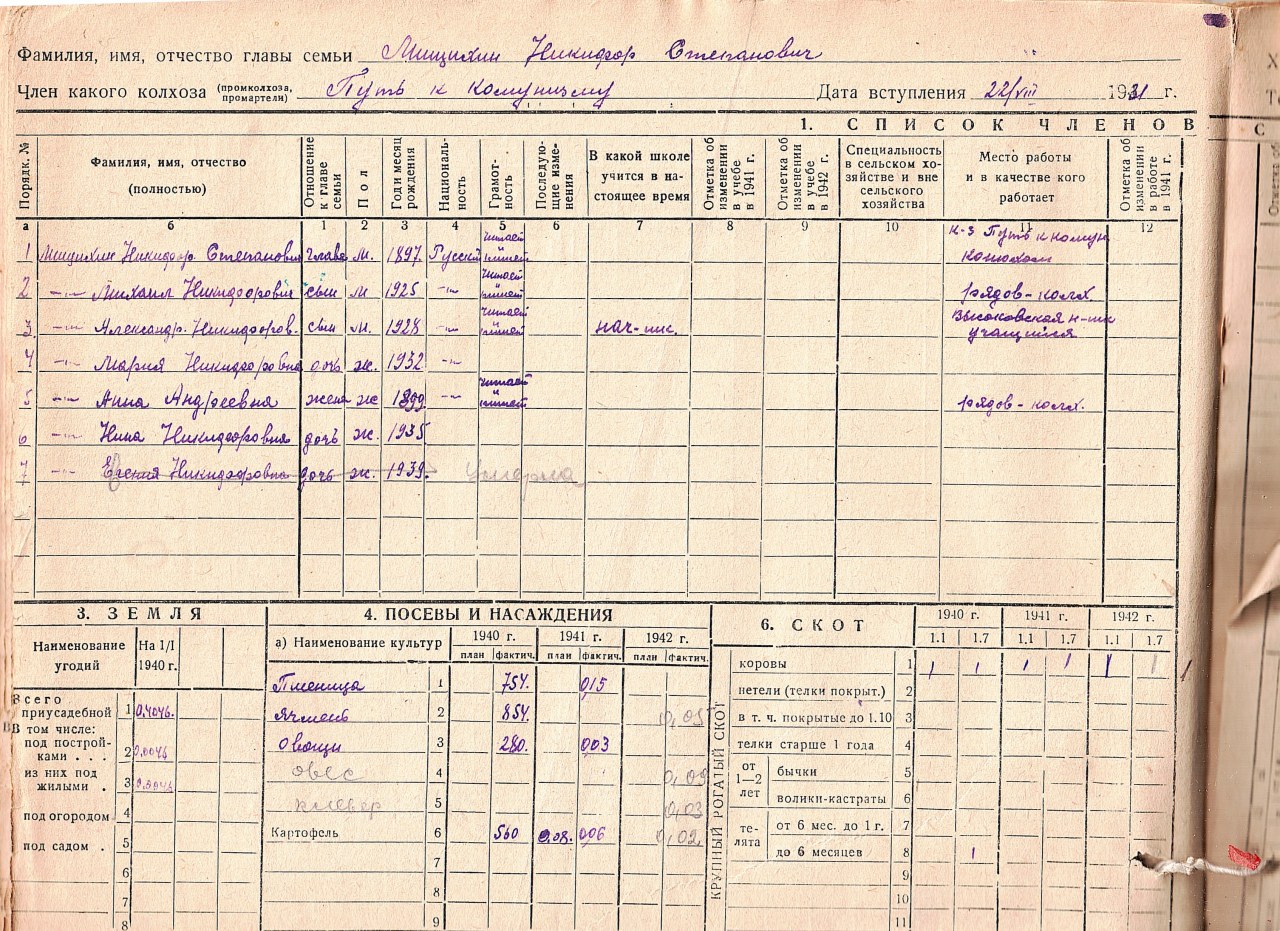 Фамилия, имя, отчество главы семьи Мищихин Никифор Степанович
Член какого колхоза (промколхоза, промартели) Путь к комунизму Дата вступления 22/VIII 1931 г.
1. СПИСОК ЧЛЕНОВ
Порядк. № Фамилия, имя, отчество (полностью) Отношение к главе семьи Пол Год и месяц рождения Националь-ность Грамот-ность Последую-щие изме-нения В какой школе учится в на-стоящее время Отметка об изменении в учебе в 1941 г. Отметка об изменении в учебе в 1942 г. Специальность в сельском хо-зяйстве и вне сельского хозяйства Место работы и в качестве кого работает Отметка об изменении в работе в 1941 г.
а б 1 2 3 4 5 6 7 8 9 10 11 12
1 Мищихин Никифор Степанович глава м. 1897 Русский читает и пишет к-з Путь к комун. конюхом
2 -"- Михаил Никифорович сын м 1925 -"- читает и пишет рядов-колх.
3 -"- Александр Никифоров. сын м. 1928 -"- читает и пишет нач-шк. Высоковская н-шк учащийся
4 -"- Мария Никифоровна дочь ж. 1932 -"-
5 -"- Анна Андреевна жена ж 1899 -"- читает и пишет рядов-колх.
6 -"- Нина Никифоровна дочь ж. 1935
7 -"- Евгения Никифоровна дочь ж. 1939. Умерла
3. ЗЕМЛЯ
Наименование угодий На 1/I 1940 г.
Всего приусадебной 1 0,4046.
В том числе:
под построй-ками . . . 2 0,0046
из них под жилыми . 3 0,0046
под огородом 4
под садом . 5
6
7
8
4. ПОСЕВЫ И НАСАЖДЕНИЯ
а) Наименование культур 1940 г. 1941 г. 1942 г.
план фактич. план фактич. план фактич.
Пшеница 1 754. 015
Ячмень 2 854. 0,05
Овощи 3 280. 003
овес 4 0,09
клевер 5 0,03
Картофель 6 560 0,08. 006 0,02
7
8
9
6. СКОТ
1940 г. 1941 г. 1942 г.
1.1 1.7 1.1 1.7 1.1 1.7
КРУПНЫЙ РОГАТЫЙ СКОТ
коровы 1 1 1 1 1 1 1
нетели (телки покрыт.) 2
в т. ч. покрытые до 1.10 3
телки старше 1 года 4
от 1—2 лет бычки 5
волики-кастраты 6
те-лята от 6 мес. до 1 г. 7
до 6 месяцев 8 1
9
10
11